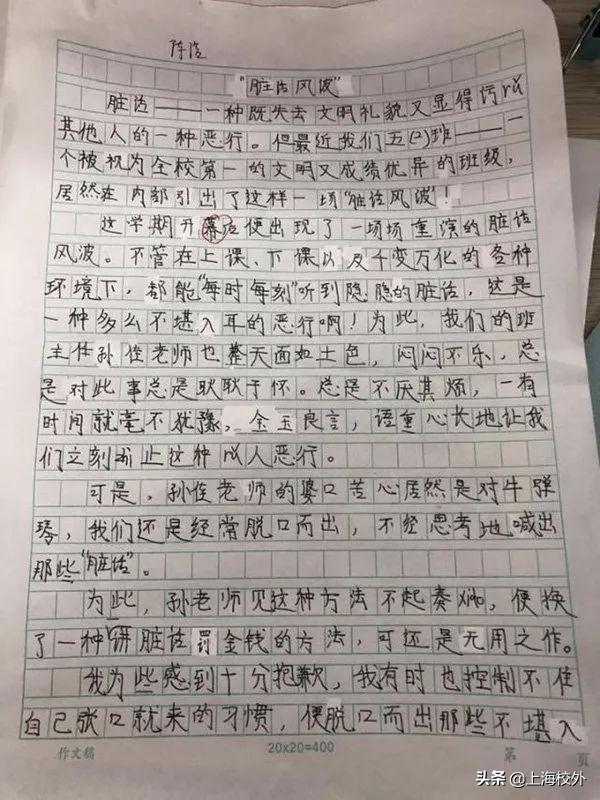 陈浩
“脏话风波”
脏话——一种既失去文明礼貌又显得污rǔ
其他人的一种恶行。但最近我们五(2)班——一
个被视为全校第一的文明又成绩优异的班级，
居然在内部引出了这样一场“脏话风波！
这学期开幕后便出现了一场场重演的脏话
风波。不管在上课、下课以及千变万化的各种
环境下，都能“每时每刻”听到隐隐的脏话，这是
一种多么不堪入耳的恶行啊！为此，我们的班
主任孙佳老师也整天面如土色，闷闷不乐，总
是对此事总是耿耿于怀。总是不厌其烦，一有
时间就毫不犹豫，金玉良言，语重心长地让我
们立刻停止这种以人恶行。
可是，孙佳老师的婆口苦心居然是对牛弹
琴，我们还是经常脱口而出，不经思考地喊出
那些“脏话”。
为此，孙老师见这种方法不起奏xiào，便换
了一种讲脏话罚金钱的方法，可还是无用之作。
我为些感到十分抱歉，我有时也控制不住
自己张口就来的习惯，便脱口而出那些不堪入
作文稿 20x20=400 第 页
头条 @上海校外